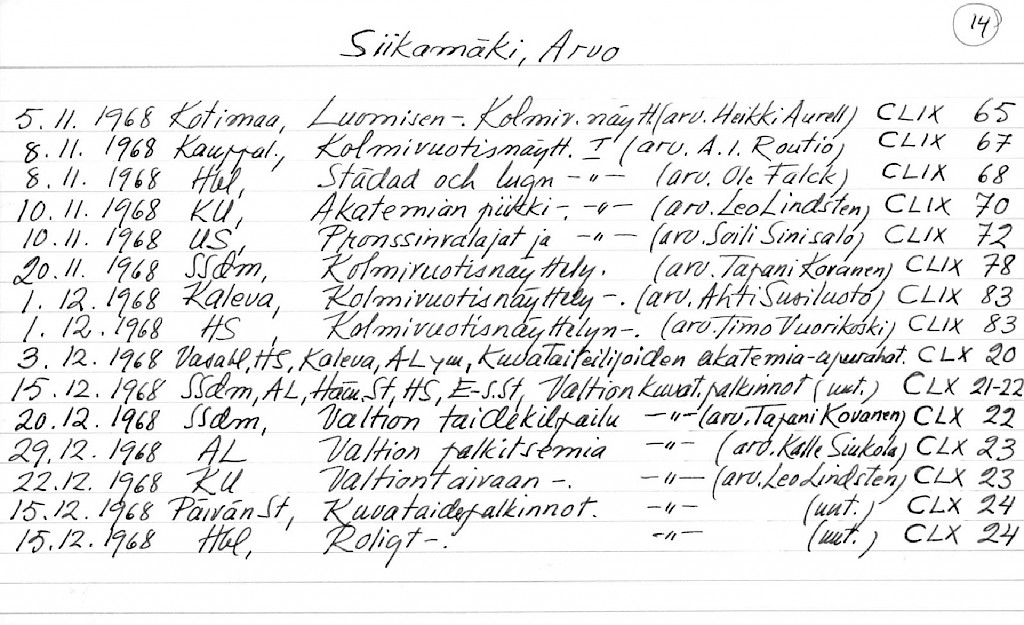 14
Siikamäki, Arvo
5.11.1968 Kotimaa, Luomisen-. Kolmiv.näytt.(arv. Heikki Aurell) CLIX 65
8.11.1968 Kauppal., Kolmivuotisnäytt. I (arv. A.I. Routio) CLIX 67
8.11.1968 Hbl, Städad och lugn -"- (arv. Ole Falck) CLIX 68
10.11.1968 KU, Akatemian piikki-. -"- (arv. Leo Lindsten) CLIX 70
10.11.1968 US, Pronssinvalajat ja -"- (arv. Soili Sinisalo) CLIX 72
20.11.1968 SSdm, Kolmivuotisnäyttely. (arv. Tapani Kovanen) CLIX 78
1.12.1968 Kaleva, Kolmivuotisnäyttely-. (arv. Ahti Susiluoto) CLIX 83
1.12.1968 HS, Kolmivuotisnäyttelyn-. (arv. Timo Vuorikoski) CLIX 83
3.12.1968 Vasabl, HS, Kaleva, AL ym, Kuvataiteilijoiden akatemia-apurahat. CLX 20
15.12.1968 SSdm, AL, Häm.St, HS, E-S.St, Valtion kuvat.palkinnot (uut.) CLX 21-22
20.12.1968 SSdm, Valtion taidekilpailu -"- (arv. Tapani Kovanen) CLX 22
29.12.1968 AL Valtion palkitsemia -"- (arv. Kalle Siukola) CLX 23
22.12.1968 KU Valtiontaivaan-. -"- (arv. Leo Lindsten) CLX 23
15.12.1968 PäivänSt, Kuvataidepalkinnot. -"- (uut.) CLX 24
15.12.1968 Hbl, Roligt-. -"- (uut.) CLX 24